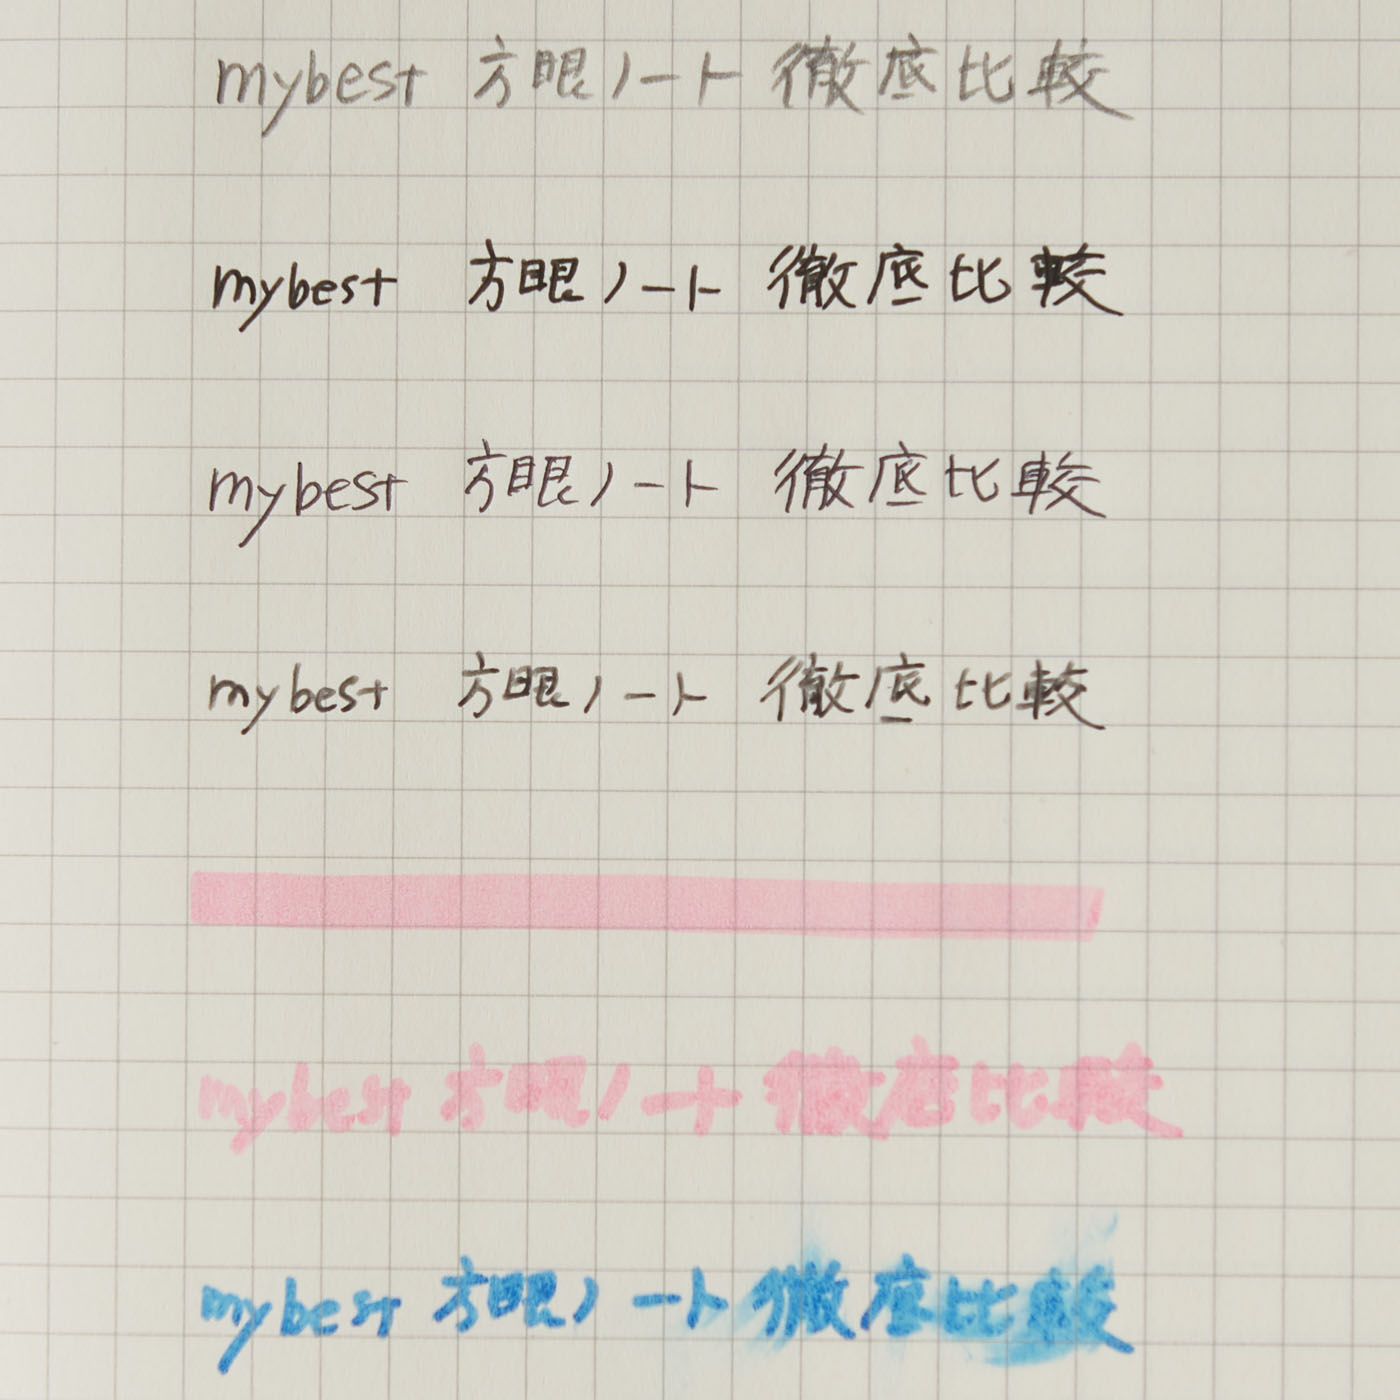 mybest 方眼ノート 徹底比較
mybest 方眼ノート 徹底比較
mybest 方眼ノート 徹底比較
mybest 方眼ノート 徹底比較
mybest 方眼ノート 徹底比較
mybest 方眼ノート 徹底比較